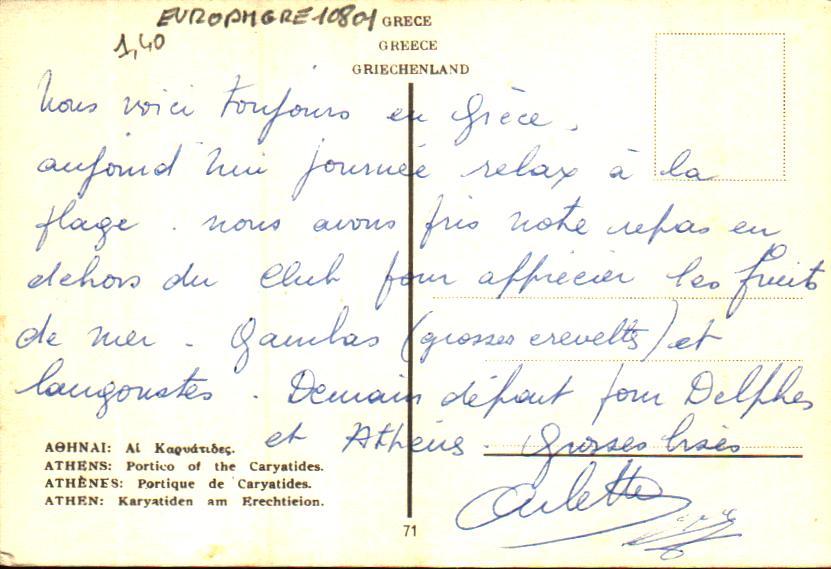 EUROPAGRE10801
1,40
GRECE
GREECE
GRIECHENLAND
Nous voici toujours en Grèce.
aujourd'hui journée relax à la
plage. nous avons pris notre repas en
dehors du Club pour apprécier les fruits
de mer. Gambas (grosses crevettes) et
langoustes. Demain départ pour Delphes
et Athènes. Grosses bises
Arlette
ΑΘΗΝΑΙ: Αἱ Καρυάτιδες.
ATHENS: Portico of the Caryatides.
ATHÈNES: Portique de Caryatides.
ATHEN: Karyatiden am Erechtieion.
71